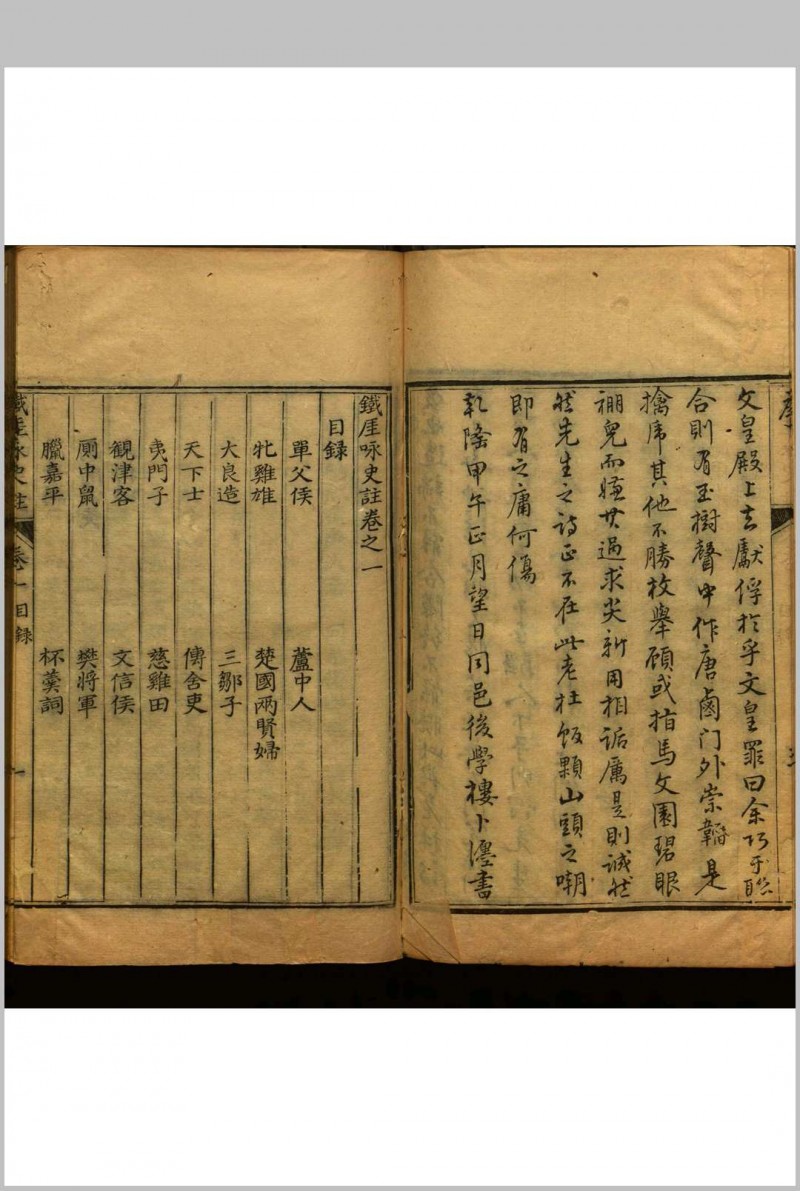 序
文皇殿上去獻俘於乎文皇罪曰余巧于聯
合則有玉樹聲中作唐鹵门外崇韜是
擒虎其他不勝枚舉顧或指馬文園碧眼
棚兒而嫌其過求尖新用相詬厲是則誠然
然先生之詩正不在此老杜飯顆山頭之嘲
即有之庸何傷
乾隆甲午正月望日同邑後學樓卜瀍書
鐵厓咏史註卷之一
目録
單父侯 蘆中人
牝雞雄 楚國兩賢婦
大良造 三鄒子
天下士 傳舍吏
夷門子 慈雞田
觀津客 文信侯
厠中鼠 樊將軍
臘嘉平 杯羹詞
鐵厓咏史註 卷一目録 一